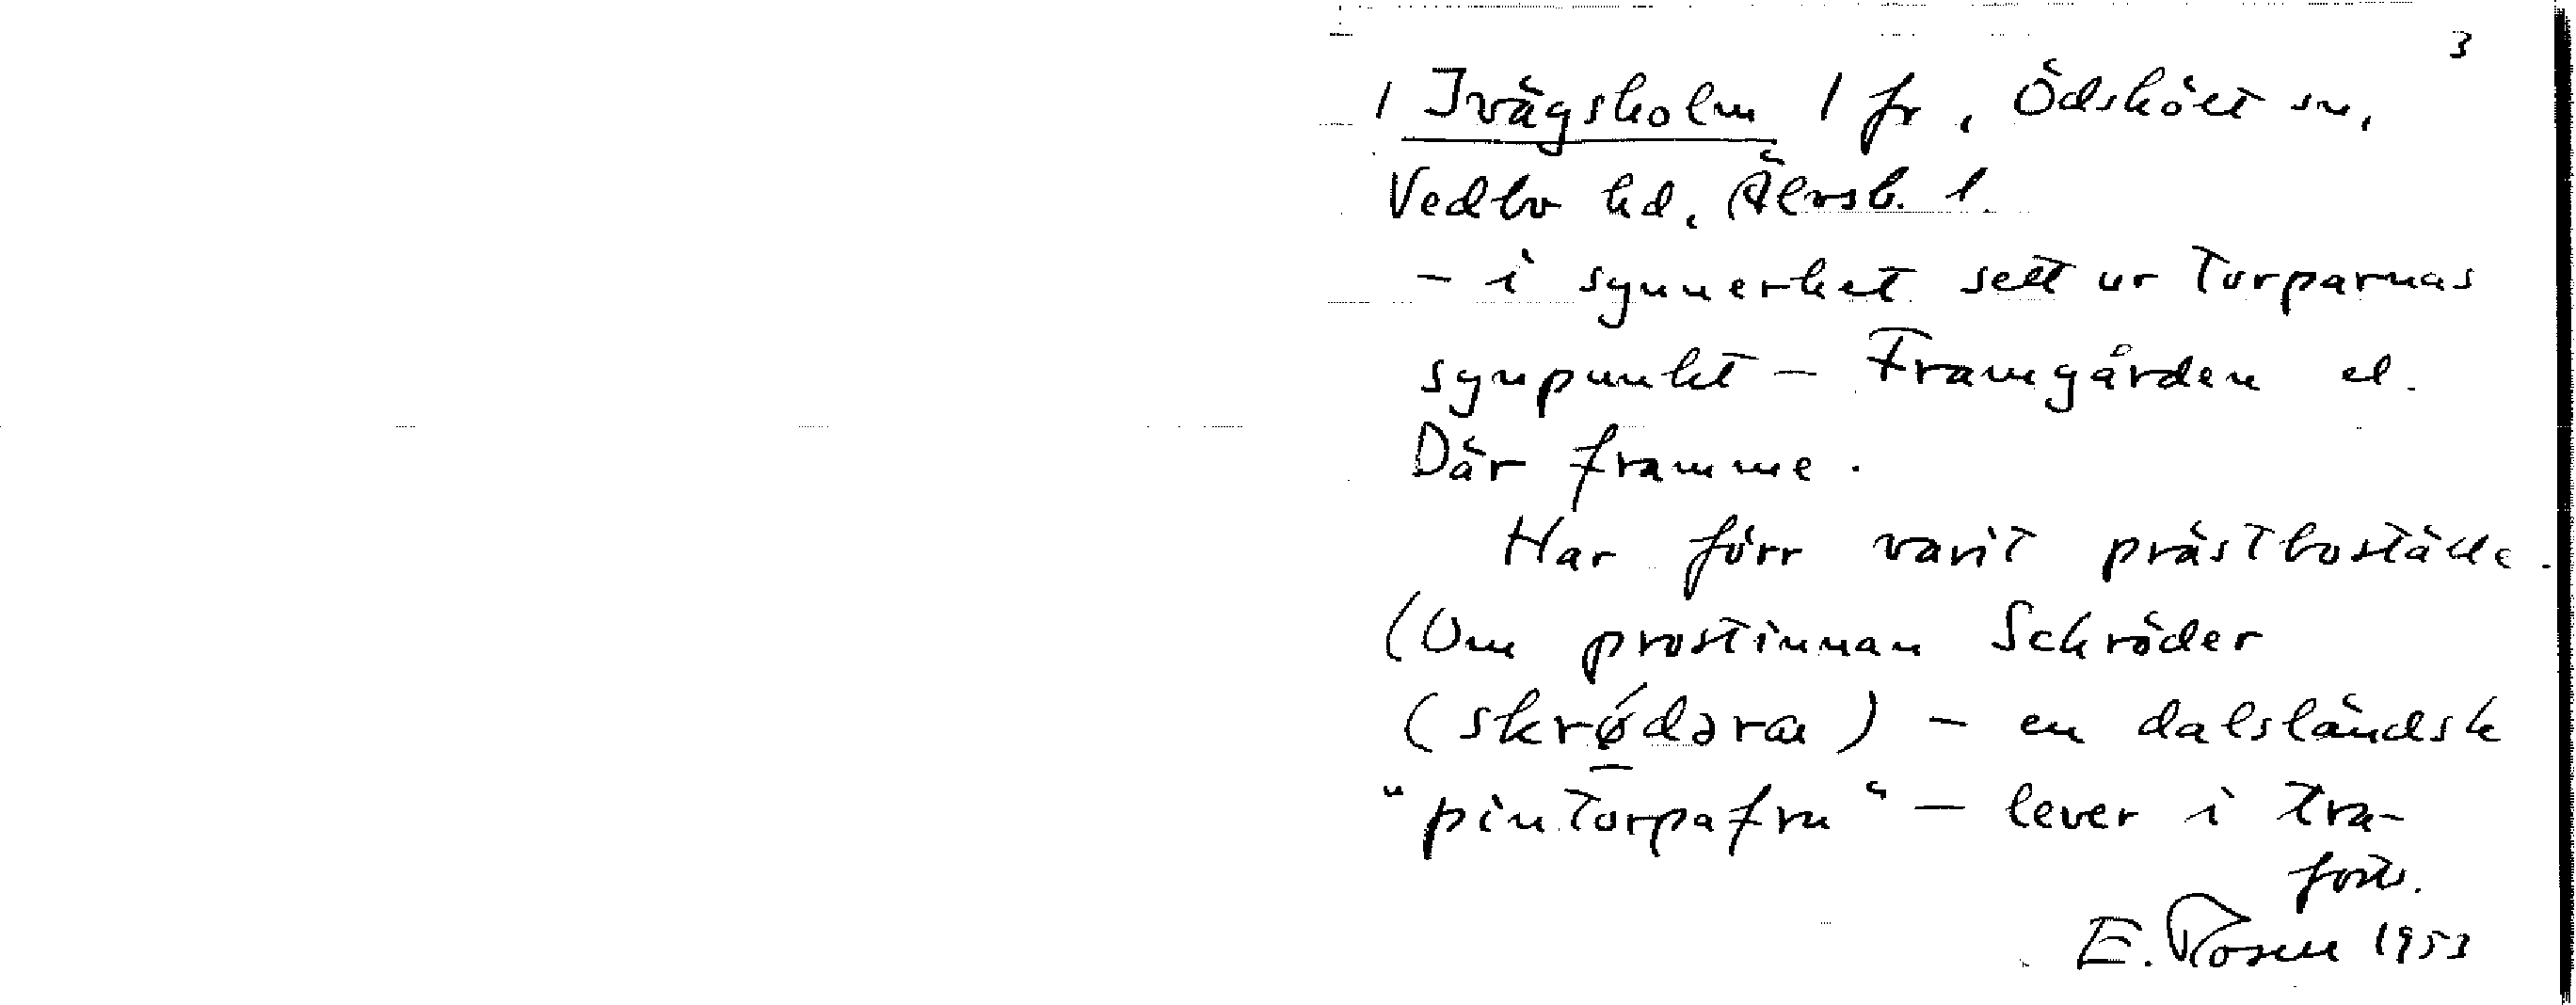 3
/ Ivägsholm / fr, Ödskölt sn,
Vedbo hd, Älvsb. l.
- i synnerhet sett ur torparnas
synpunkt - Framgården el.
Där framme.
Har förr varit prästboställe.
(Om prostinnan Schröder
(skrǿ̱dəra) - en dalsländsk
"pintorpafru" - lever i tra-
forts.
E. Rosell 1953